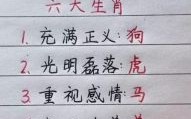 六大生肖
1.充满正义:狗
2.光明磊落:虎
3.重视感情马